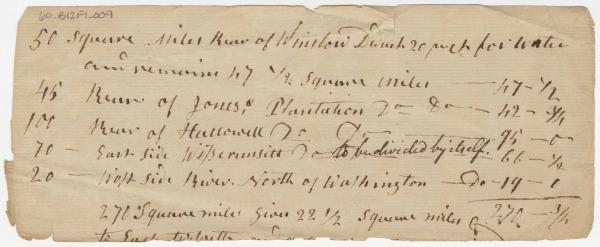 60-B12F1-009
50 Square Miles Rear of Winslow Deduct 20 pr ct for Water
and remains 47 1/2 Square miles — 47-1/2
45 Rear of Jones's Plantation Do Do — 42-3/4
100 Rear of Hallowell Do. Do — 95-0
70 — East side Do to be divided by itself. 66-1/2
20 — West side River North of Washington — Do-19-0
270 Square miles gives 22 1/2 Square miles 270-3/4
to Each